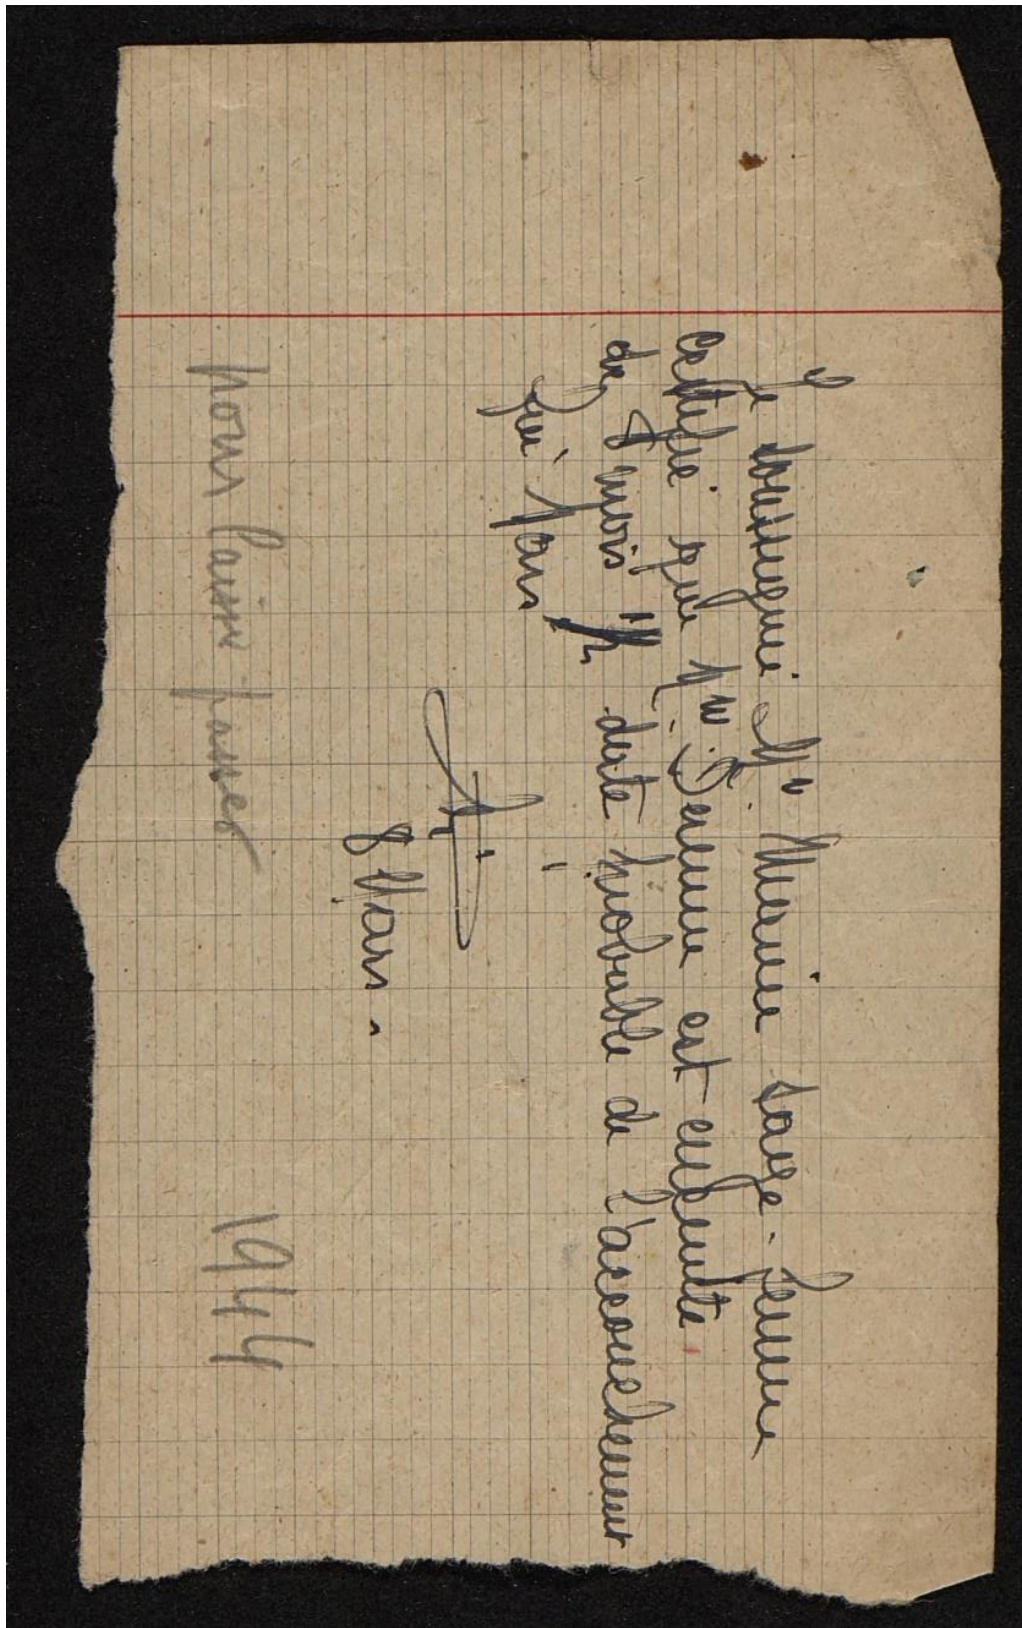 Je soussignée Mme Meunier sage-femme
certifie que Mme est enceinte
de mois 1/2 date probable de l'accouchement
fin Mars
8 Mars.
pour laisser passer 1944